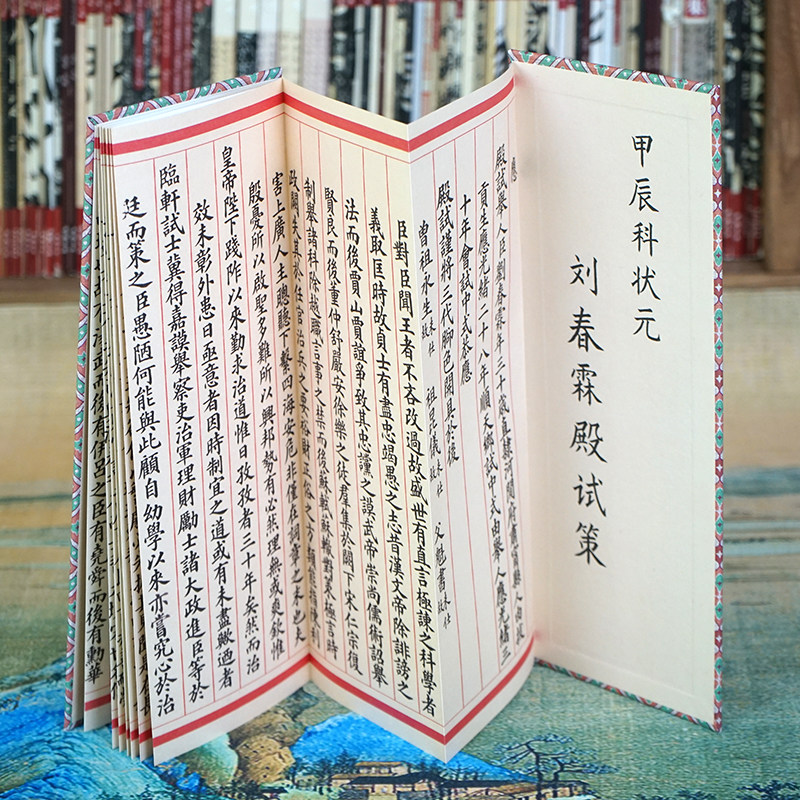 甲辰科状元
刘春霖殿试策
應
殿試舉人臣劉春霖年三十歲直隸河間府肅寧縣人由拔
貢生應光緒二十八年順天鄉試中式由舉人應光緒三
十年會試中式恭應
殿試謹將三代腳色開具於後
曾祖永生未仕故 祖昆儀未仕故 父魁書未仕故
臣對臣聞王者不吝改過故盛世有直言極諫之科學者
義取匡時故貞士有盡忠竭愚之志昔漢文帝除誹謗之
法而後賈山賈誼爭致其忠讜之謨武帝崇尚儒術詔舉
賢良而後董仲舒嚴安徐樂之徒羣集於闕下宋仁宗復
制舉諸科除越職言事之禁而後蘇軾蘇轍對策極言時
政闕失其於任官治兵之要裕財正俗之方類能指陳利
害上廣人主聰聽下繫四海安危非僅在詞章之末也夫
殷憂所以啟聖多難所以興邦勢有必然理無或爽欽惟
皇帝陛下踐阼以來勤求治道惟日孜孜者三十年矣然而治
效未彰外患日亟意者因時制宜之道或有未盡歟迺者
臨軒試士冀得嘉謨舉察吏治軍理財勵士諸大政進臣等於
廷而策之臣愚陋何能與此顧自幼學以來亦嘗究心於治
而後有伊呂之臣有堯舜而後有勳華